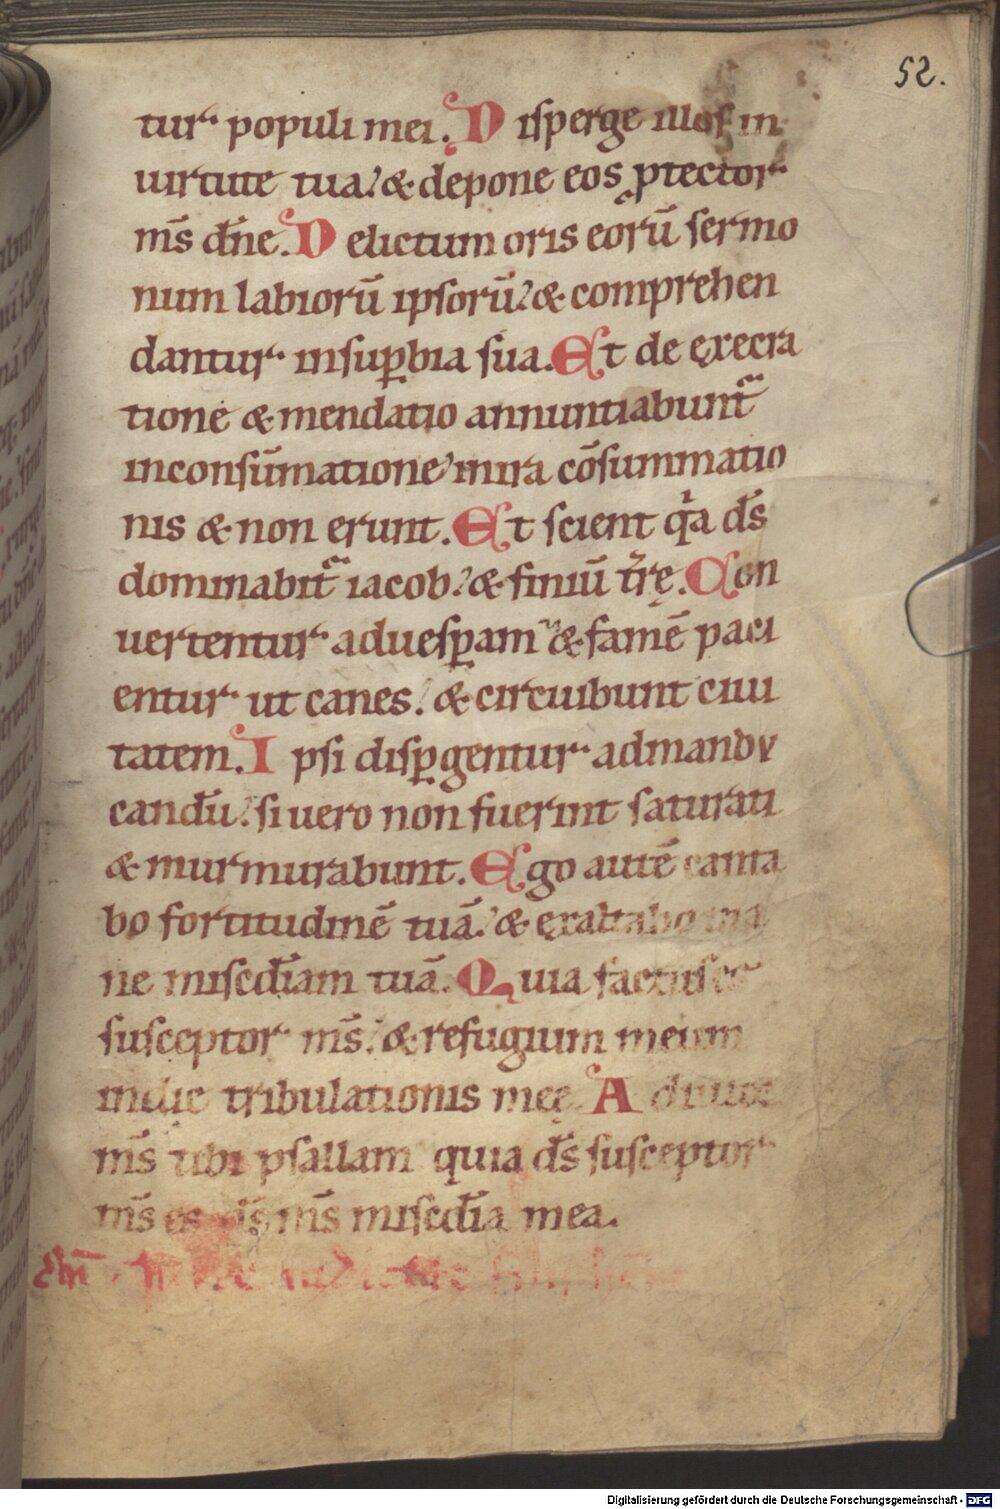 52.
tur populi mei. Disperge illos in
uirtute tua: & depone eos ꝓtector
ms̄ dn̄e. Delictum oris eorū sermo
num labiorū ipsorū: & comprehen
dantur insuꝑbia sua. Et de execra
tione & mendatio annuntiabunt᷑
inconsūmatione mira cōsummatio
nis & non erunt. Et scient qͥa ds̄
dominabit᷑ iacob: & finiū tr̄ę. Con
uertentur aduesꝑam & famē paci
entur ut canes: & circuibunt ciui
tatem. Ipsi disꝑgentur admandu
candū: si uero non fuerint saturati
& murmurabunt. Ego autē canta
bo fortitudinē tuā: & exaltabo ma
ne misc̄diam tuā. Quia factus es
susceptor ms̄: & refugium meum
indie tribulationis meę. Adiutor
ms̄ tibi psallam quia ds̄ susceptor
ms̄ es ds̄ ms̄ misc̄dia mea.
Digitalisierung gefördert durch die Deutsche Forschungsgemeinschaft - DFG